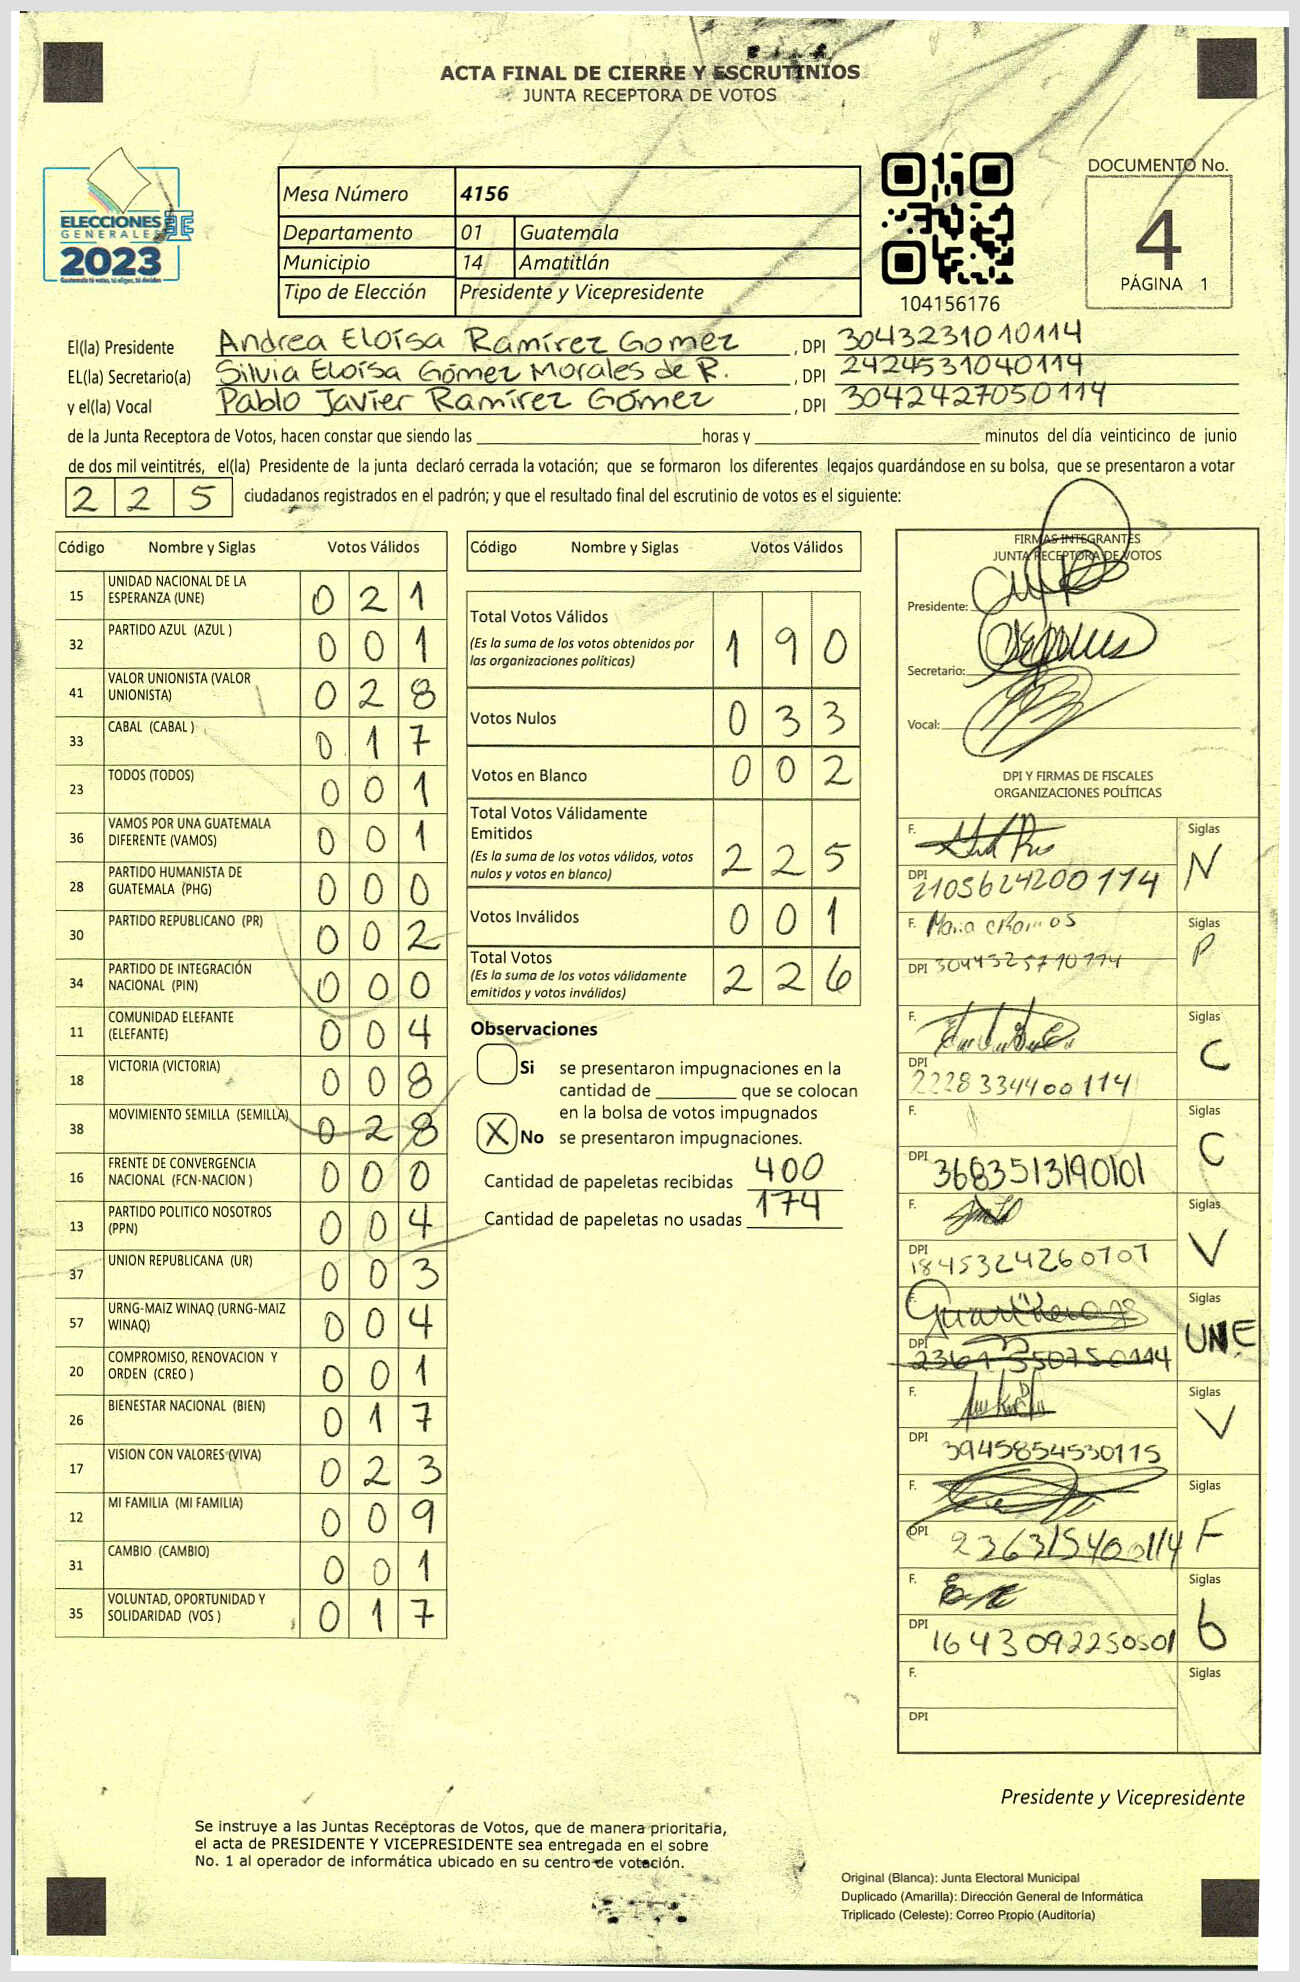 ACTA FINAL DE CIERRE Y ESCRUTINIOS
JUNTA RECEPTORA DE VOTOS
ELECCIONES
GENERALES
2023
Guatemala tú votas, tú eliges, tú decides
TSE
Mesa Número 4156
Departamento 01 Guatemala
Municipio 14 Amatitlán
Tipo de Elección Presidente y Vicepresidente
104156176
DOCUMENTO No.
4
PÁGINA 1
El(la) Presidente Andrea Eloísa Ramírez Gomez, DPI 3043231010114
EL(la) Secretario(a) Silvia Eloísa Gómez Morales de R., DPI 2424531040114
y el(la) Vocal Pablo Javier Ramírez Gómez, DPI 3042427050114
de la Junta Receptora de Votos, hacen constar que siendo las ____ horas y ____ minutos del día veinticinco de junio
de dos mil veintitrés, el(la) Presidente de la junta declaró cerrada la votación; que se formaron los diferentes legajos guardándose en su bolsa, que se presentaron a votar
225 ciudadanos registrados en el padrón; y que el resultado final del escrutinio de votos es el siguiente:
Código Nombre y Siglas Votos Válidos
15 UNIDAD NACIONAL DE LA ESPERANZA (UNE) 021
32 PARTIDO AZUL (AZUL ) 001
41 VALOR UNIONISTA (VALOR UNIONISTA) 028
33 CABAL (CABAL ) 017
23 TODOS (TODOS) 001
36 VAMOS POR UNA GUATEMALA DIFERENTE (VAMOS) 001
28 PARTIDO HUMANISTA DE GUATEMALA (PHG) 000
30 PARTIDO REPUBLICANO (PR) 002
34 PARTIDO DE INTEGRACIÓN NACIONAL (PIN) 000
11 COMUNIDAD ELEFANTE (ELEFANTE) 004
18 VICTORIA (VICTORIA) 008
38 MOVIMIENTO SEMILLA (SEMILLA) 028
16 FRENTE DE CONVERGENCIA NACIONAL (FCN-NACION ) 000
13 PARTIDO POLITICO NOSOTROS (PPN) 004
37 UNION REPUBLICANA (UR) 003
57 URNG-MAIZ WINAQ (URNG-MAIZ WINAQ) 004
20 COMPROMISO, RENOVACION Y ORDEN (CREO ) 001
26 BIENESTAR NACIONAL (BIEN) 017
17 VISION CON VALORES (VIVA) 023
12 MI FAMILIA (MI FAMILIA) 009
31 CAMBIO (CAMBIO) 001
35 VOLUNTAD, OPORTUNIDAD Y SOLIDARIDAD (VOS ) 017
Código Nombre y Siglas Votos Válidos
Total Votos Válidos 190
(Es la suma de los votos obtenidos por
las organizaciones políticas)
Votos Nulos 033
Votos en Blanco 002
Total Votos Válidamente
Emitidos 225
(Es la suma de los votos válidos, votos
nulos y votos en blanco)
Votos Inválidos 001
Total Votos 226
(Es la suma de los votos válidamente
emitidos y votos inválidos)
Observaciones
Si se presentaron impugnaciones en la
cantidad de ____ que se colocan
en la bolsa de votos impugnados
X No se presentaron impugnaciones.
Cantidad de papeletas recibidas 400
Cantidad de papeletas no usadas 174
FIRMAS INTEGRANTES
JUNTA RECEPTORA DE VOTOS
Presidente:
Secretario:
Vocal:
DPI Y FIRMAS DE FISCALES
ORGANIZACIONES POLÍTICAS
F. Siglas N
DPI 2105624200114
F. Maria Ramos Siglas P
DPI
F. Siglas C
DPI 2228334400114
F. Siglas C
DPI 3683513190101
F. Siglas V
DPI 1845324260707
F. Siglas UNE
DPI
F. Siglas V
DPI 3945854530115
F. Siglas F
DPI 236315400114
F. Siglas b
DPI 1643092250501
F. Siglas
DPI
Presidente y Vicepresidente
Se instruye a las Juntas Receptoras de Votos, que de manera prioritaria,
el acta de PRESIDENTE Y VICEPRESIDENTE sea entregada en el sobre
No. 1 al operador de informática ubicado en su centro de votación.
Original (Blanca): Junta Electoral Municipal
Duplicado (Amarilla): Dirección General de Informática
Triplicado (Celeste): Correo Propio (Auditoría)